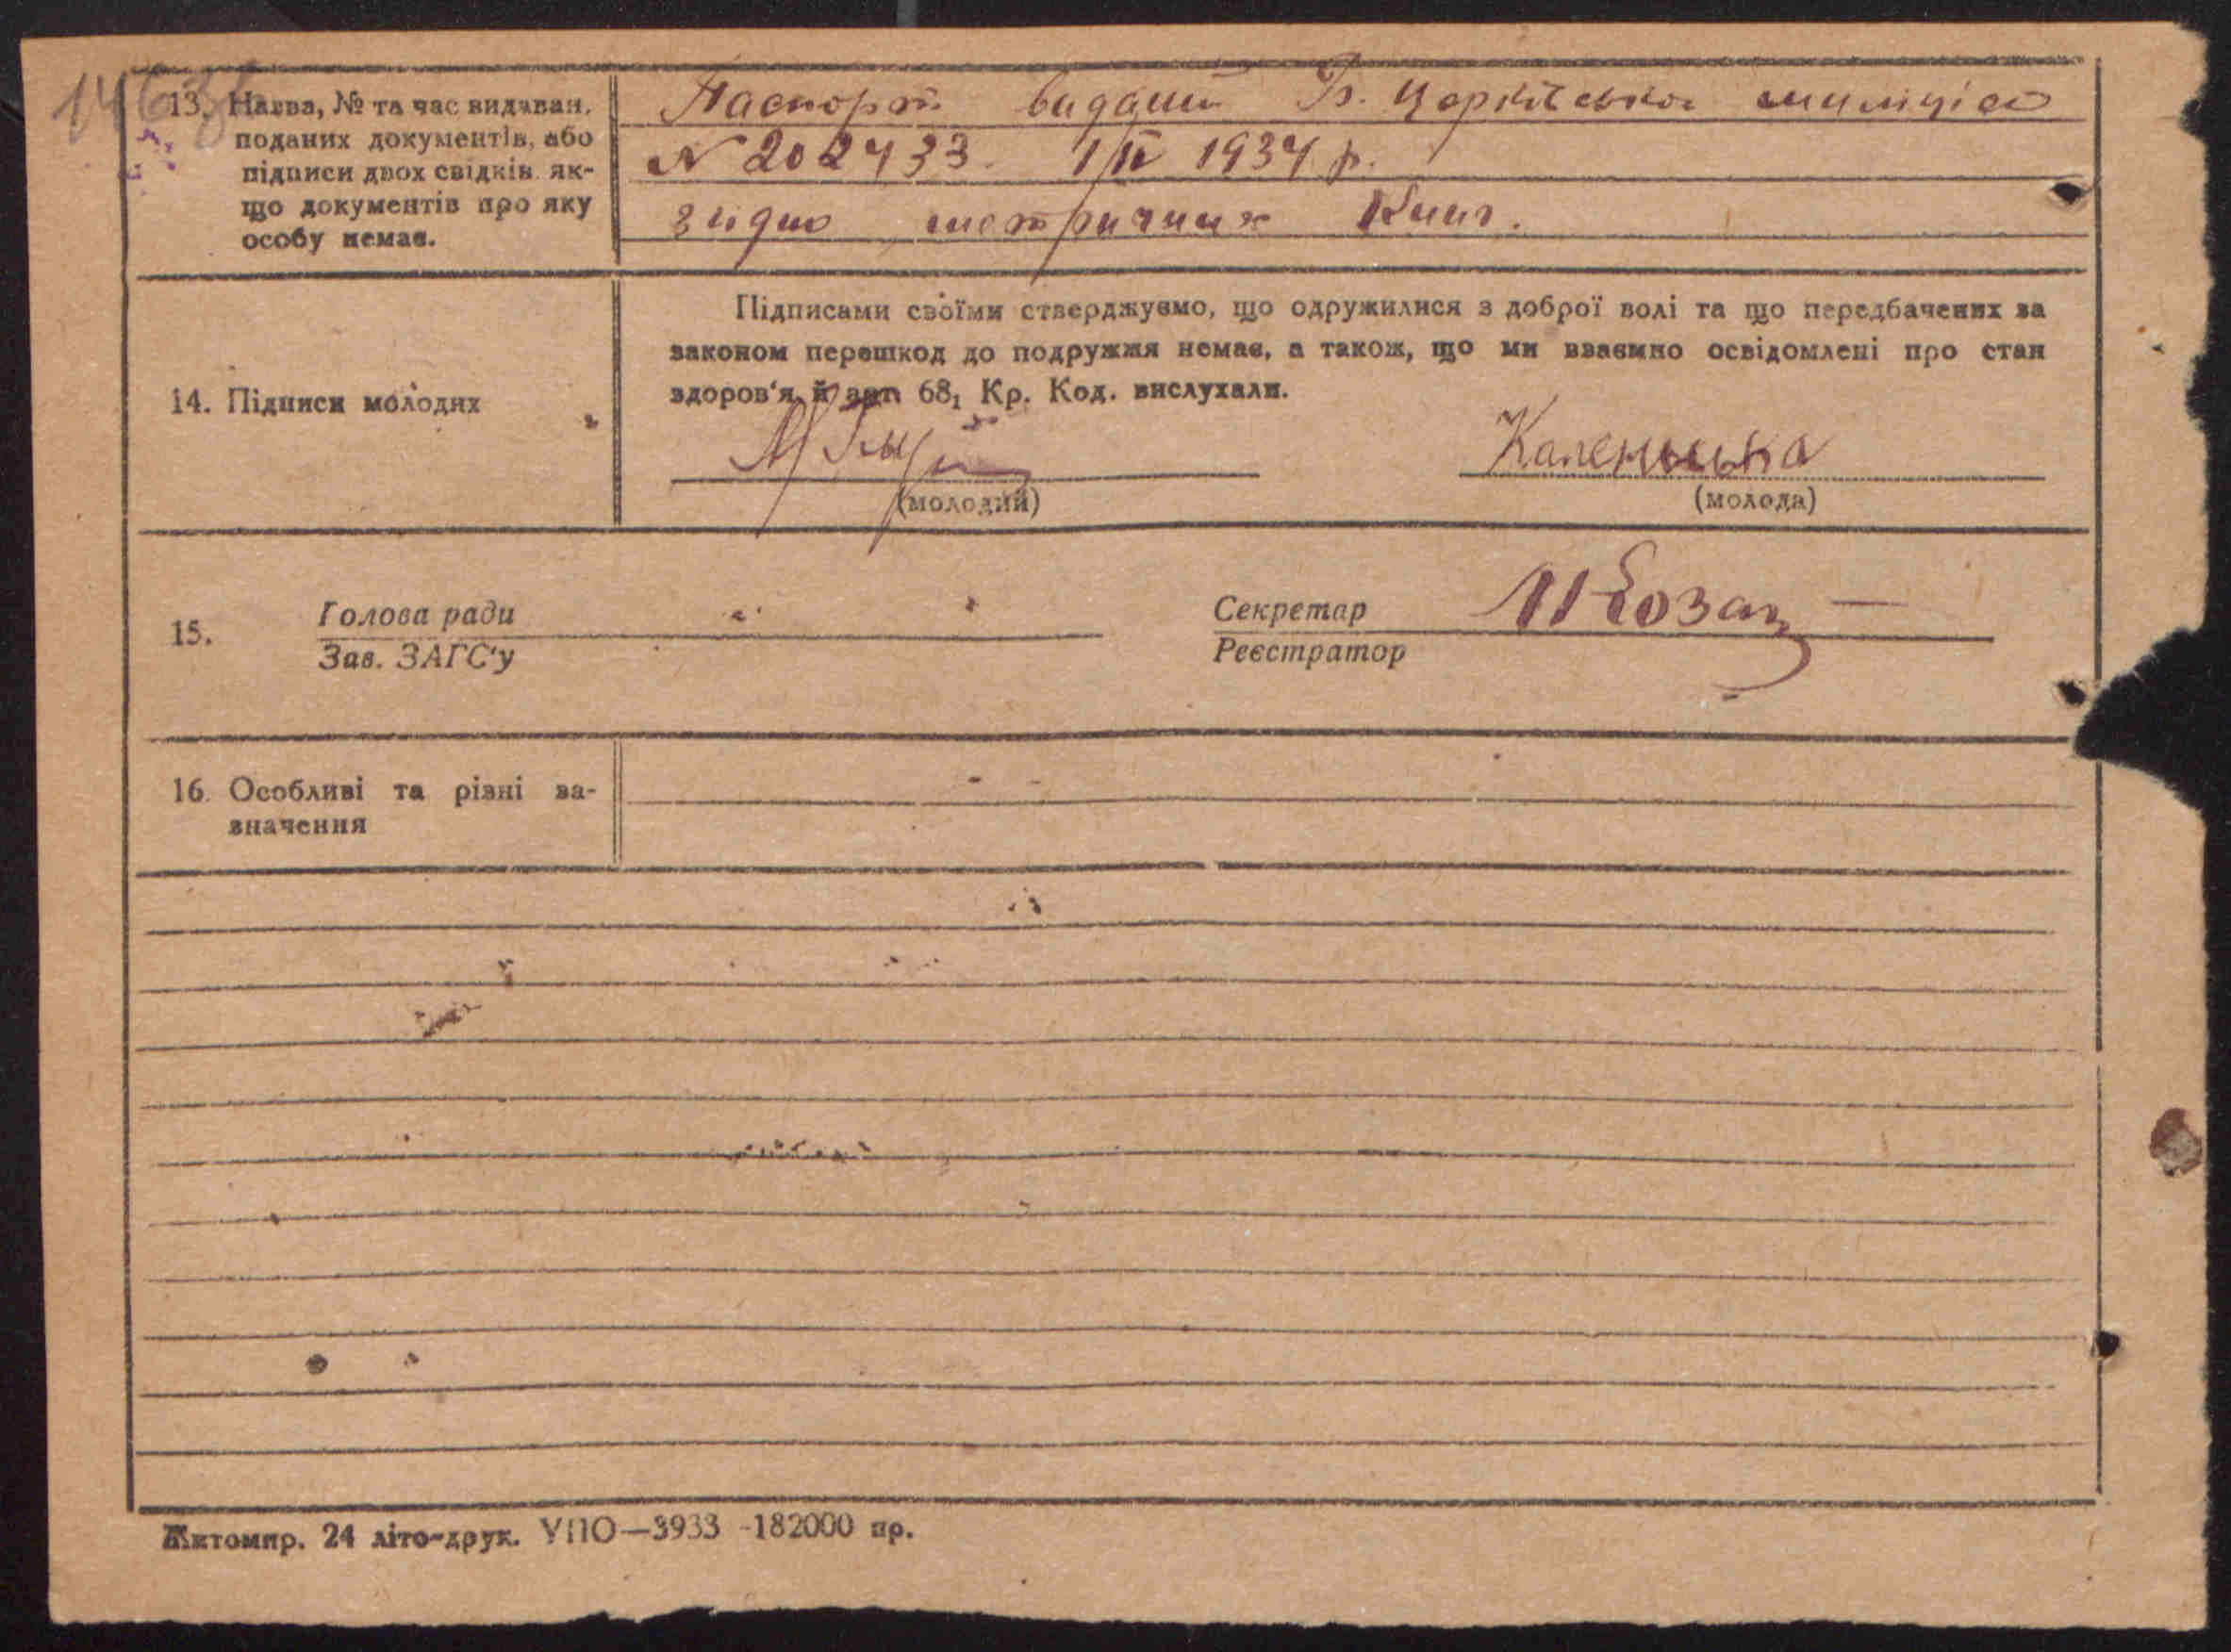 13. Назва, № та час видаван.
поданих документів, або
підписи двох свідків, як-
що документів про яку
особу немає.
Паспорт виданий Б. Церківською міліцією
№ 202433. 1/IV 1934 р.
згідно метричних книг.
14. Підписи молодих
Підписами своїми стверджуємо, що одружилися з доброї волі та що передбачених за
законом перешкод до подружжя немає, а також, що ми взаємно освідомлені про стан
здоров'я, й арт. 68₁ Кр. Код. вислухали.
(молодий)
(молода)
15. Голова ради
Зав. ЗАГС'у
Секретар
Реєстратор
16. Особливі та різні за-
значення
Житомир. 24 літо-друк. УПО—3933 -182000 пр.